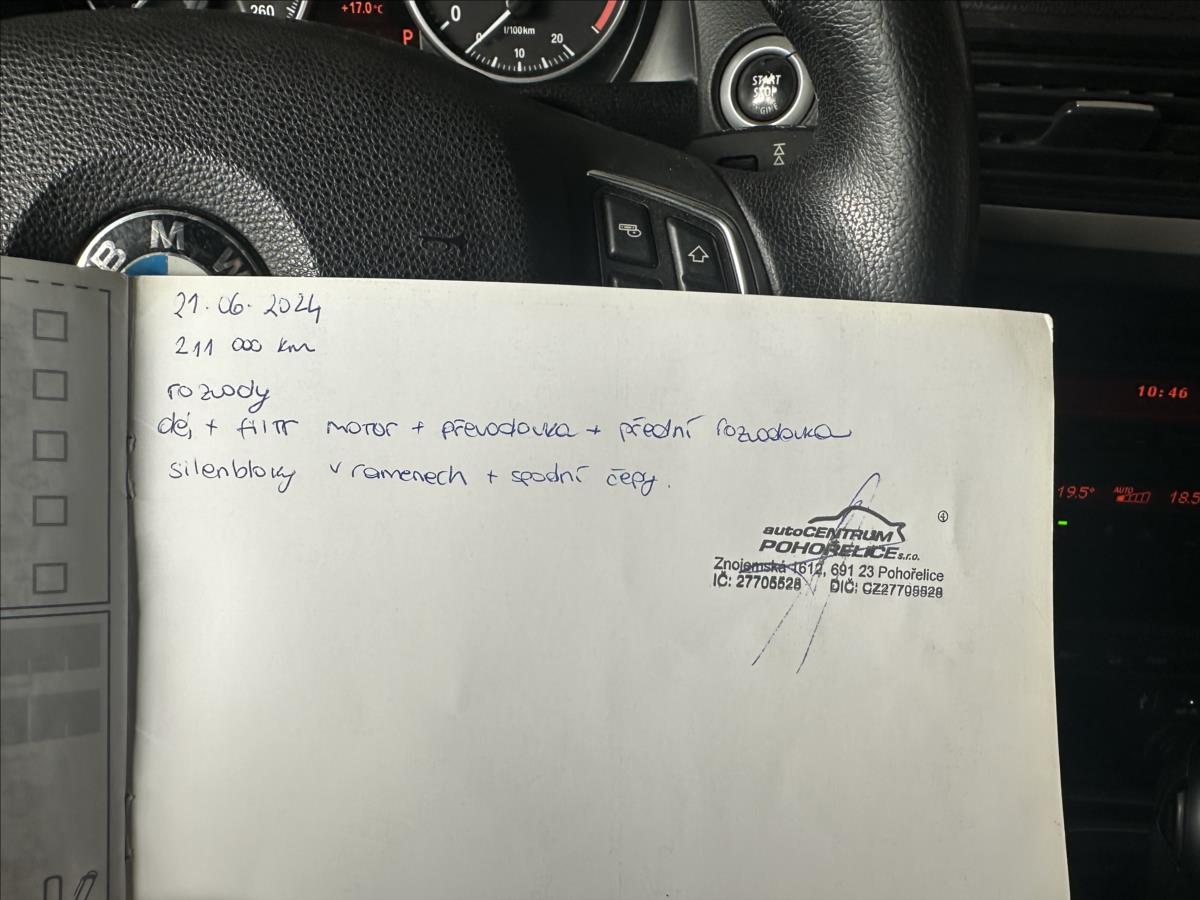 260
+17.0°C
P
0
l/100km
10
20
START
STOP
BMW
21.06.2024
211 000 km
rozvody
olej + filtr motor + převodovka + přední rozvodovka
silenbloky v ramenech + spodní čepy.
10:46
19.5°
AUTO
18.5
4
autoCENTRUM
POHOŘELICE s.r.o.
Znojemská 1612, 691 23 Pohořelice
IČ: 27705528 DIČ: CZ27705528